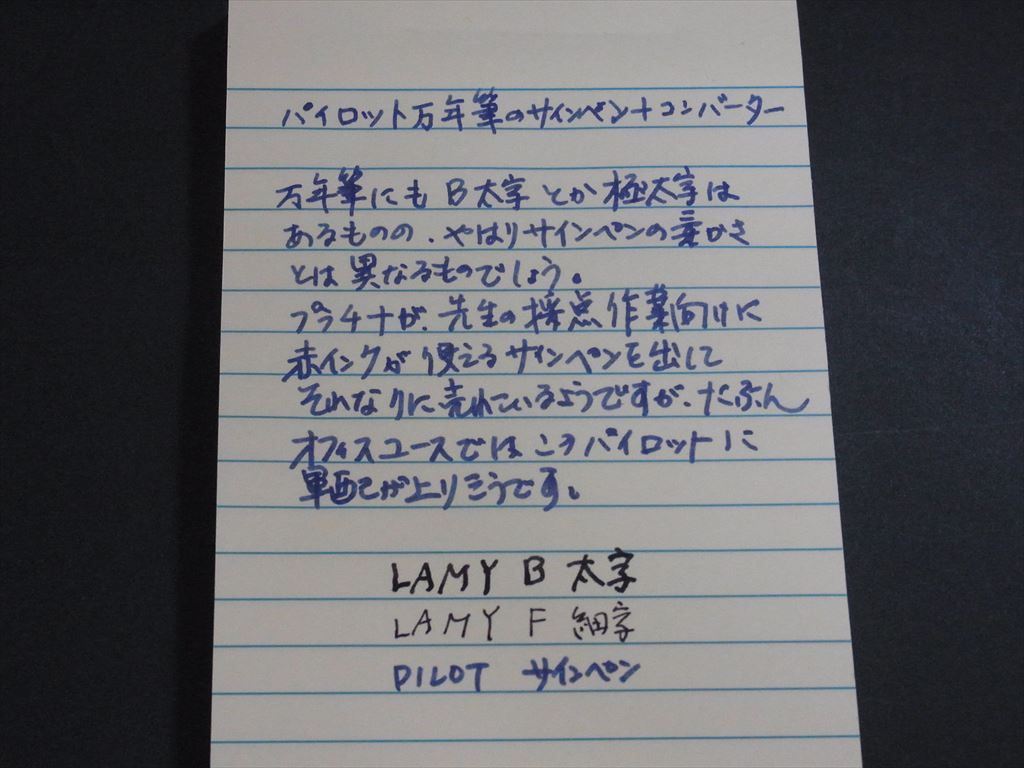 パイロット万年筆のサインペン+コンバーター
万年筆にも B太字 とか 極太字は
あるものの、やはりサインペンの書かさ
とは 異なるものでしょう。
プラチナが、先生の採点作業向けに
赤インクが使えるサインペンを出して
それなりに売れているようですが、たぶん
オフィスユースではこのパイロットに
軍配が上りそうです。
LAMY B 太字
LAMY F 細字
PILOT サインペン